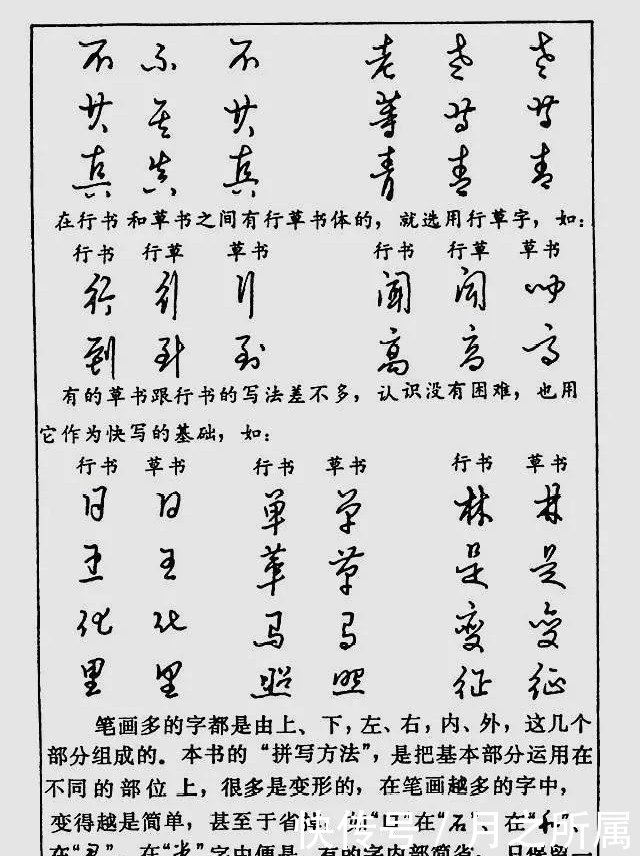 不 不 不 老 老 老
共 共 共 等 等 等
真 真 真 青 青 青
在行书和草书之间有行草书体的，就选用行草字，如：
行书 行草 草书 行书 行草 草书
行 行 行 闻 闻 闻
到 到 到 高 高 高
有的草书跟行书的写法差不多，认识没有困难，也用
它作为快写的基础，如：
行书 草书 行书 草书 行书 草书
日 日 单 单 林 林
王 王 草 草 是 是
化 化 马 马 变 变
里 里 照 照 征 征
笔画多的字都是由上、下，左、右，内、外，这几个
部分组成的。本书的“拼写方法”，是把基本部分运用在
不同的部位上，很多是变形的，在笔画越多的字中，
变得越是简单，甚至于省掉，如“口”在“石”、在“和”、
字中便是，有的字内部简省，只保留
快传号 / 月之所属